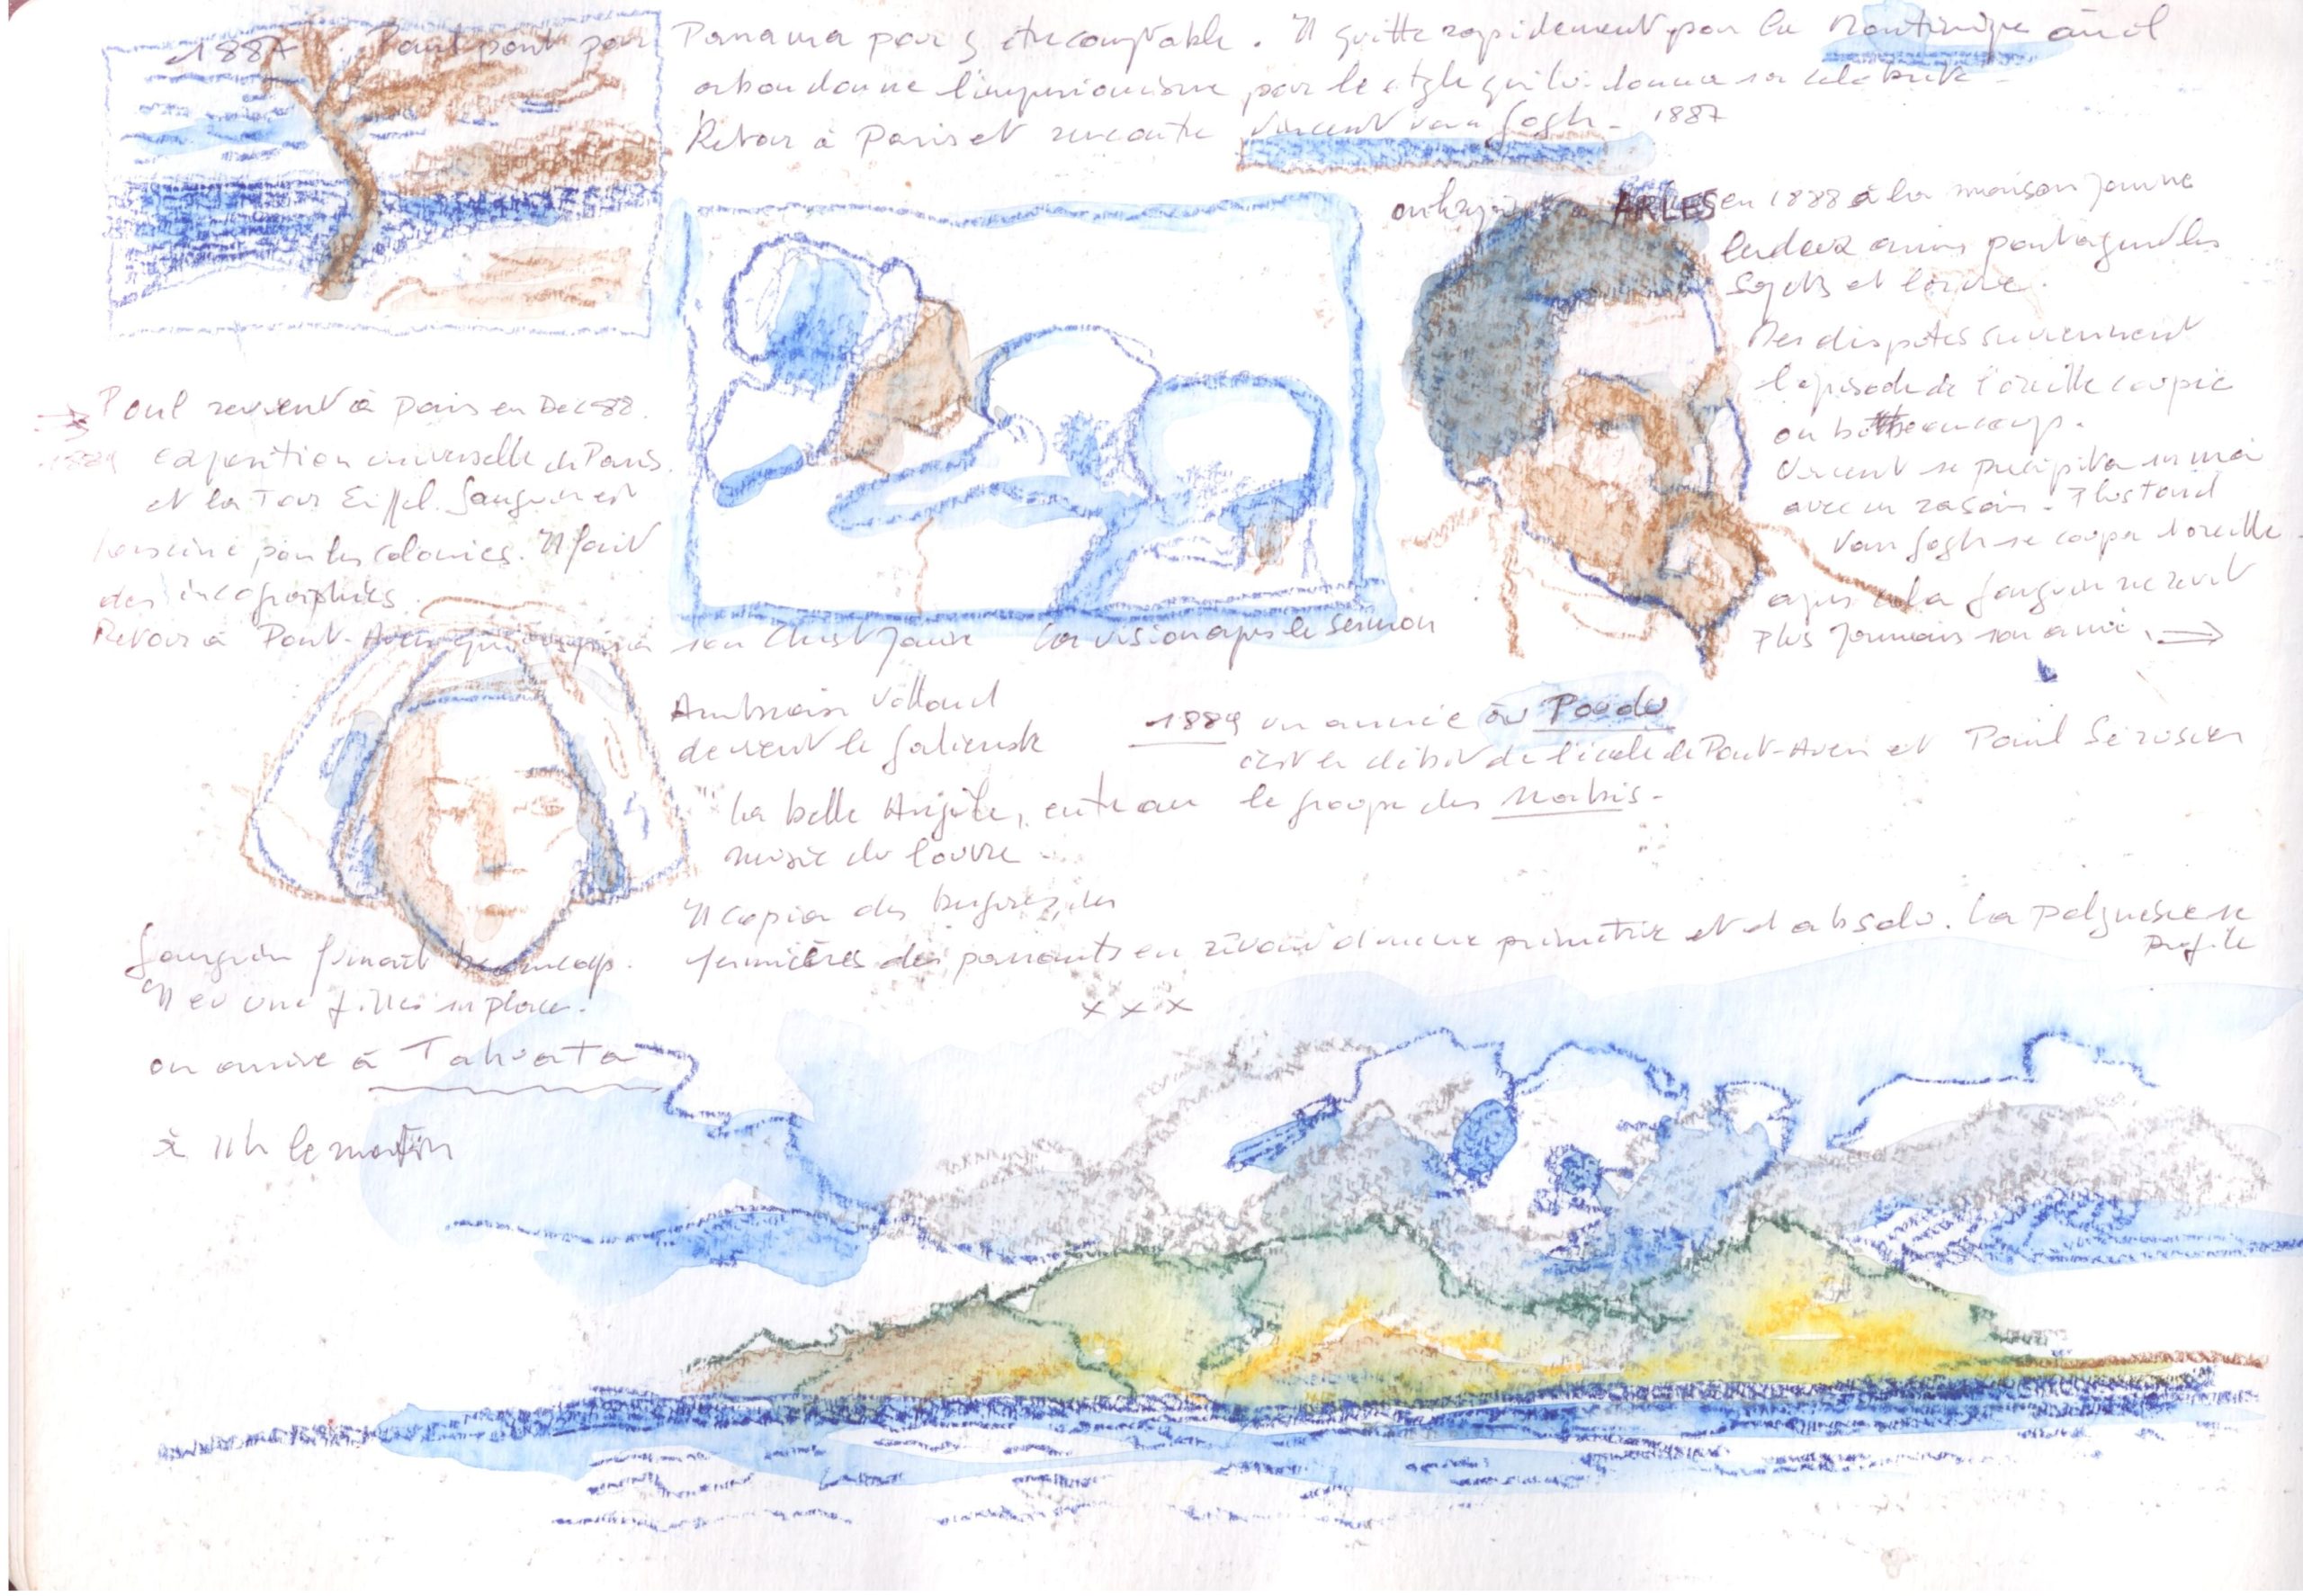 1887. Paul part pour Panama pour y être comptable. Il quitte rapidement pour la Martinique où il
abandonne l'impressionisme pour le style qui lui donna sa célébrité -
Retour à Paris et rencontre Vincent van Gogh - 1887
ARLES en 1888 à la maison jaune
les deux amis partagent les
sujets et
Des disputes surviennent
l'épisode de l'oreille coupée
on beaucoup.
Vincent se précipita sur moi
avec un rasoir - Plus tard
Van Gogh se coupa l'oreille
après cela Gauguin ne revit
Plus jamais son ami. →
→ Paul revient à Paris en Dec 88.
1889 exposition universelle de Paris
et la Tour Eiffel. Gauguin est
pour les colonies. Il fait
des
Retour à Pont-Aven qui inspira son Christ jaune La vision après le sermon
Ambroise Vollard
devient le galeriste
"La belle Angèle, entre au
musée du louvre -
1889 un année au Pouldu
c'est le début de l'école de Pont-Aven et Paul Sérusier
le groupe des Nabis -
Il copia des
fermières des paysants en rêvant d'une primitive et d'absolu. La polynésie se
profile
x x x
Gauguin fumait beaucoup.
Il eu une filles sur place.
on arrive à Tahuata
à 11h le matin